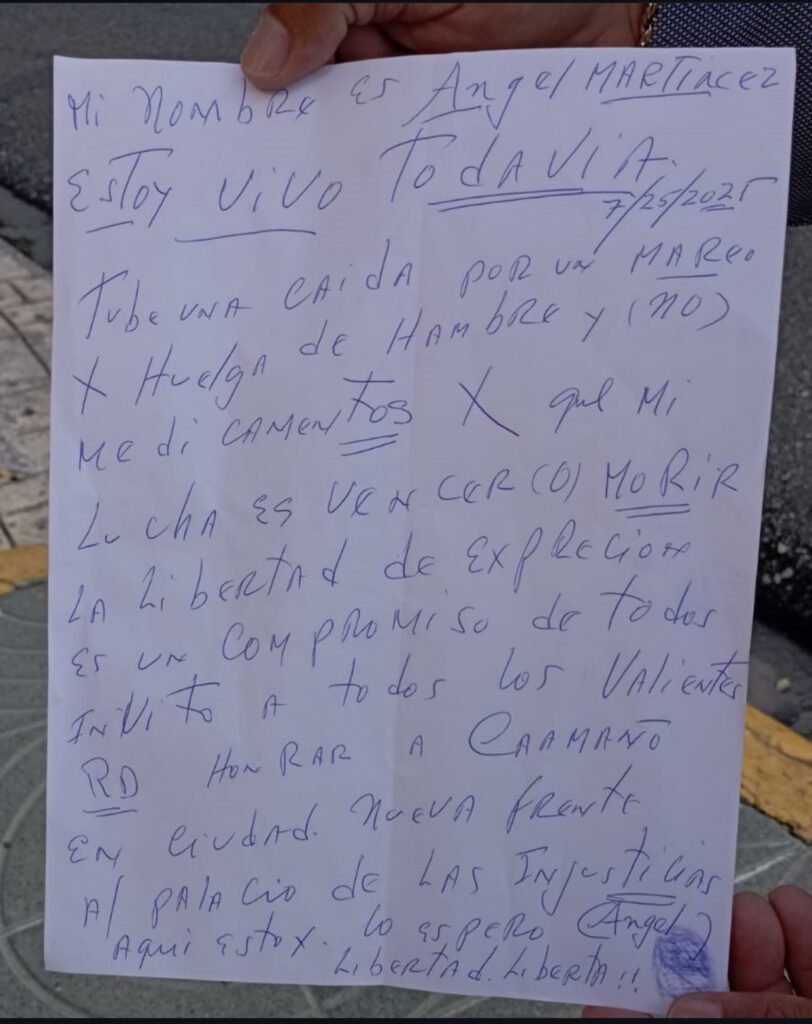 Mi NOMBRE ES Angel MARTINEZ
ESTOY VIVO TODAVIA.
7/25/2025
TUBE UNA CAIDA POR UN MAREO
X HUELGA de HAMBRE y (NO)
MEDICAMENTOS X que Mi
LUCHA ES VENCER (O) MORIR
LA LIBERTAD de EXPRECION
ES UN COMPROMISO de TODOS
INVITO A TODOS LOS VALIENTES
RD HONRAR A CAAMAÑO
EN CIUDAD. NUEVA FRENTE
Al PALACIO de LAS INJUSTICIAS
AQUI ESTOY. LO ESPERO (Angel)
LIBERTAD. LIBERTA!!